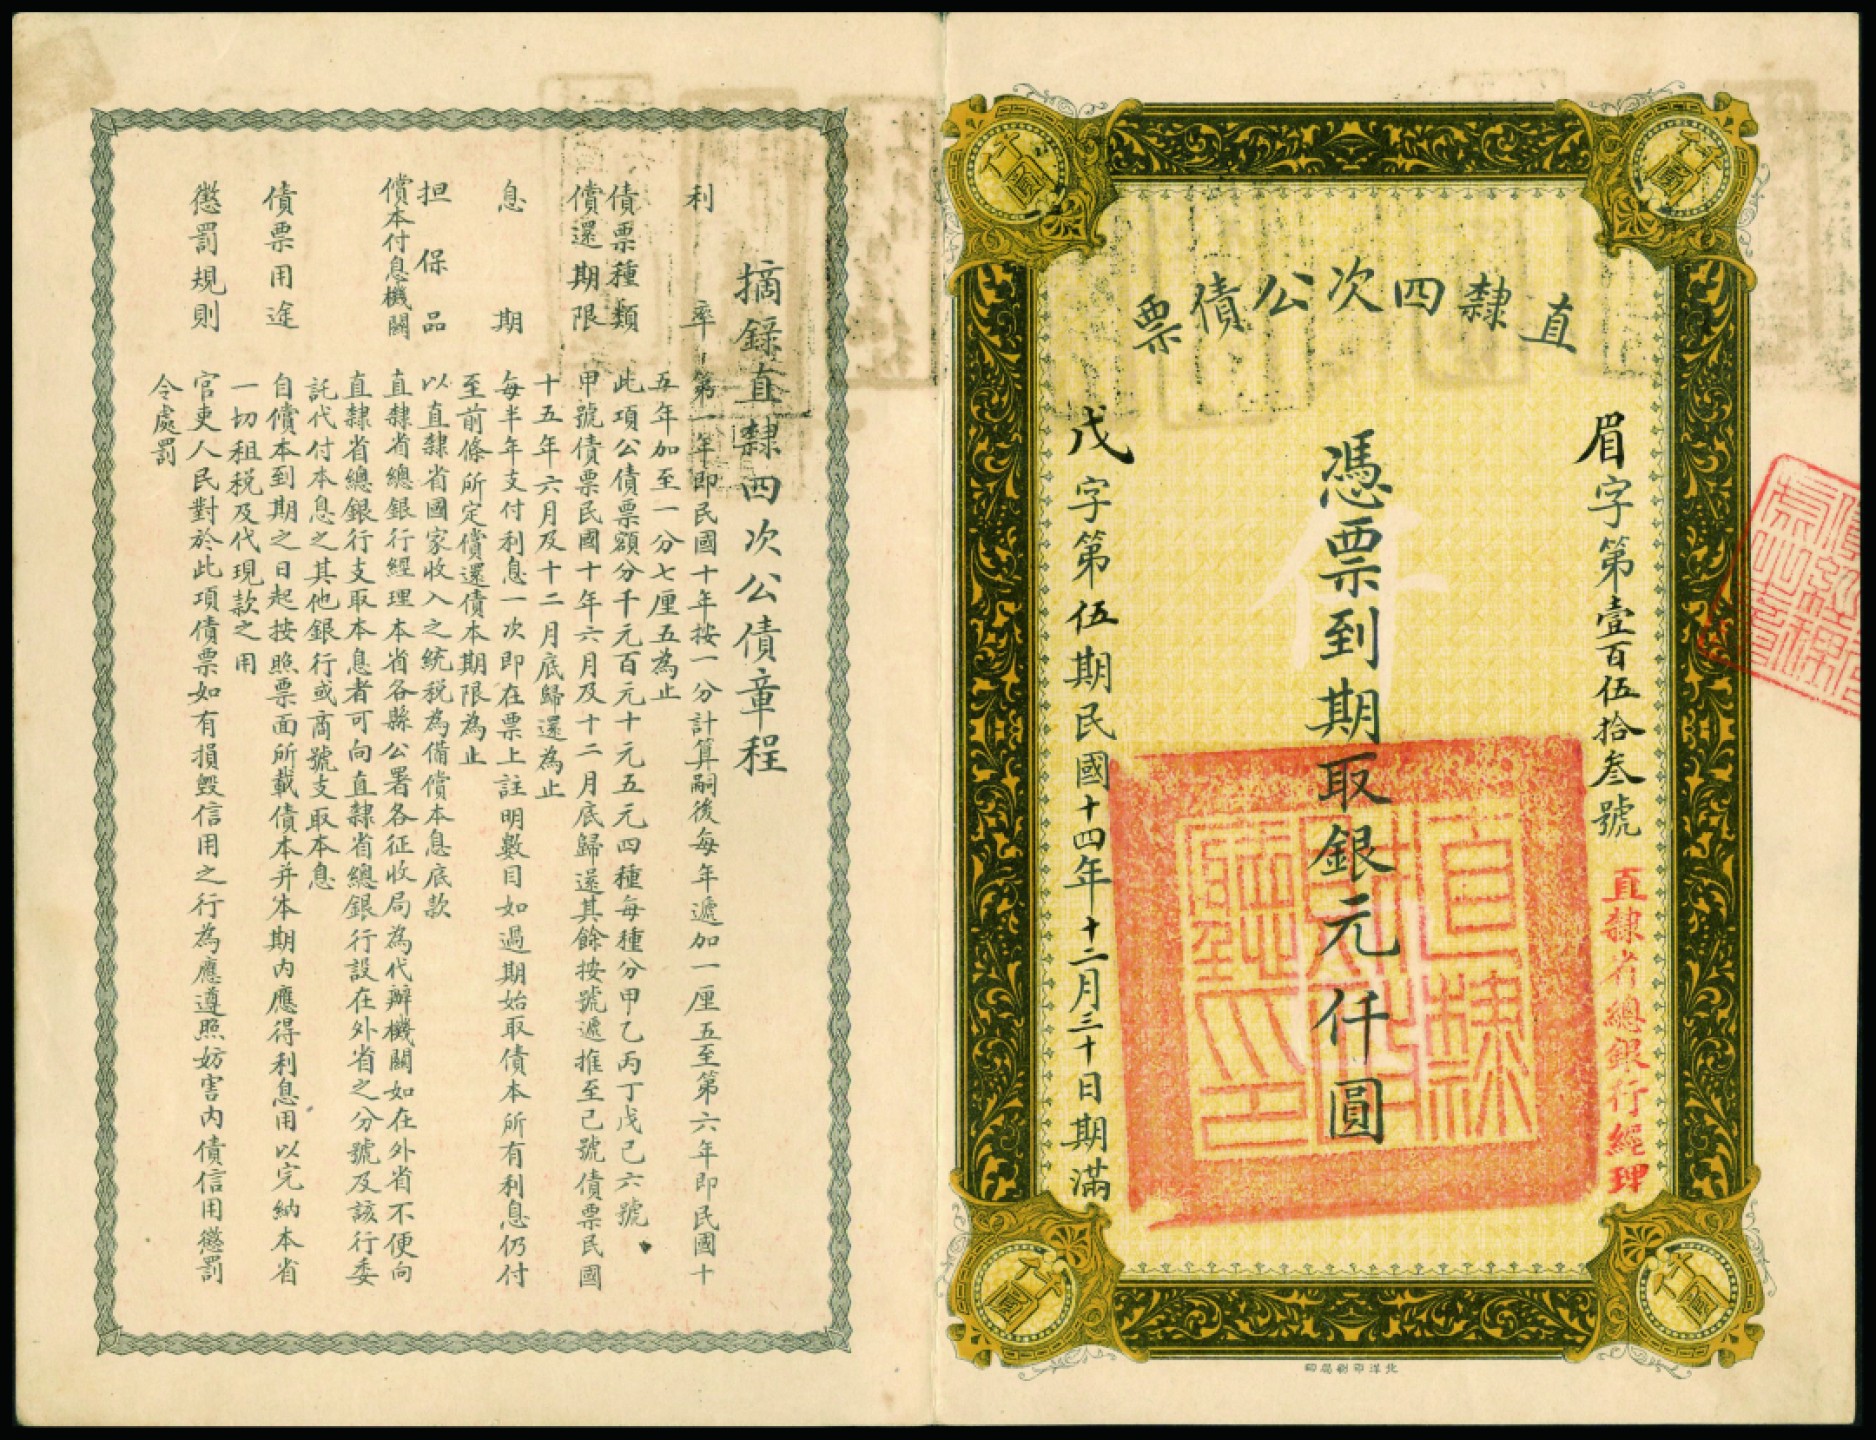 仟圓
仟圓
直隸四次公債票
眉字第壹百伍拾叁號
直隸省總銀行經理
憑票到期取銀元仟圓
仟
戊字第伍期民國十四年十二月三十日期滿
仟圓
仟圓
北洋印刷局印
摘錄直隸四次公債章程
利率
第一年即民國十年按一分計算嗣後每年遞加一厘五至第六年即民國十
五年加至一分七厘五為止
債票種類
此項公債票額分千元百元十元五元四種每種分甲乙丙丁戊己六號
償還期限
甲號債票民國十年六月及十二月底歸還其餘按號遞推至己號債票民國
十五年六月及十二月底歸還為止
息期
每半年支付利息一次即在票上註明數目如過期始取債本所有利息仍付
至前條所定償還債本期限為止
担保品
以直隸省國家收入之統稅為備償本息底款
償本付息機關
直隸省總銀行經理本省各縣公署各征收局為代辦機關如在外省不便向
直隸省總銀行支取本息者可向直隸省總銀行設在外省之分號及該行委
託代付本息之其他銀行或商號支取本息
債票用途
自償本到期之日起按照票面所載債本并本期內應得利息用以完納本省
一切租稅及代現款之用
懲罰規則
官吏人民對於此項債票如有損毀信用之行為應遵照妨害內債信用懲罰
令處罰